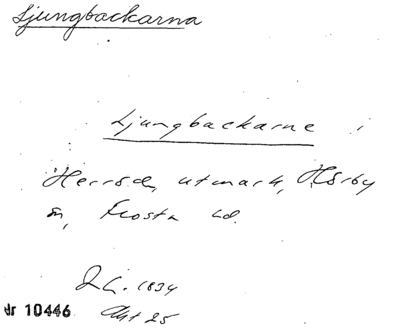 Ljungbackarna
Ljungbackarne i
Herröds utmark, Hörby
sn, Frosta hd.
1834
Akt 25
dr 10446